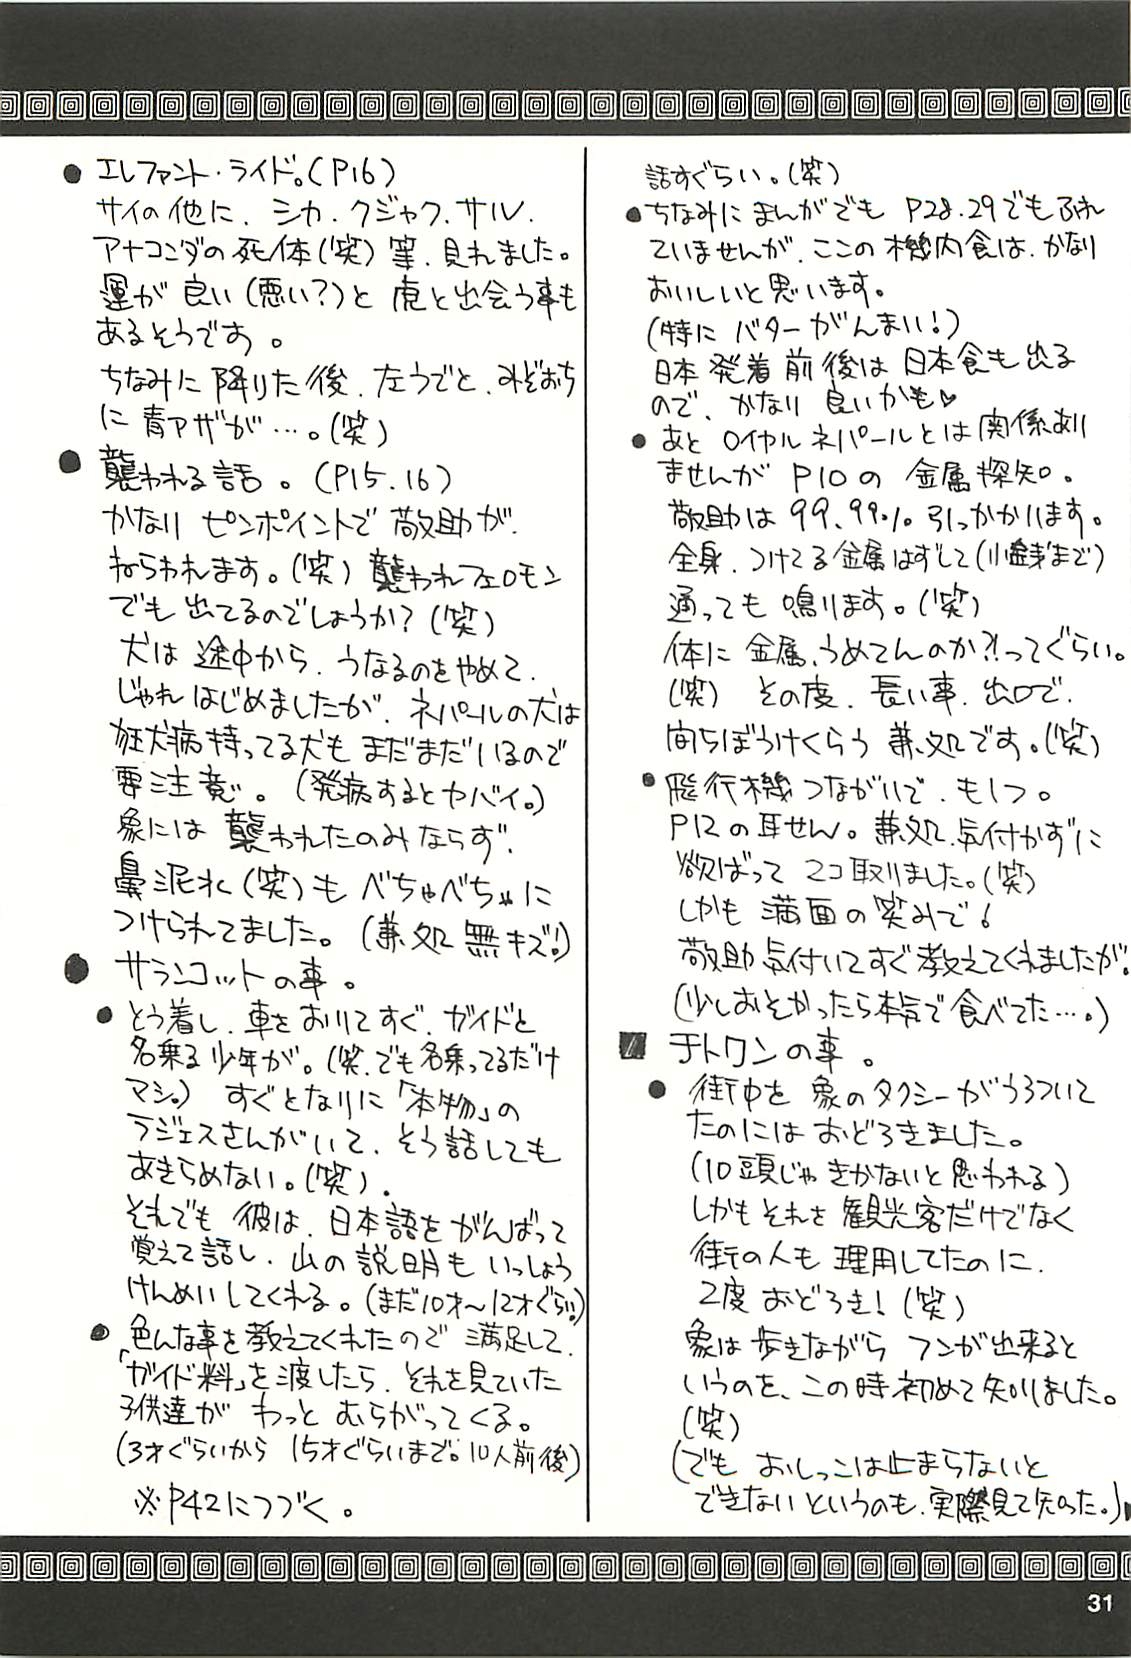 ● エレファント・ライド。(P16)
サイの他に、シカ、クジャク、サル、
アナコンダの死体(笑)等、見れました。
運が良い(悪い?)と虎と出会う事も
あるそうです。
ちなみに降りた後、左うでと、みぞおち
に青アザが…。(笑)
● 襲われる話。(P15.16)
かなりピンポイントで敬助が、
ねらわれます。(笑)襲われフェロモン
でも出てるのでしょうか?(笑)
犬は途中から、うなるのをやめて、
じゃれはじめましたが、ネパールの犬は
狂犬病持ってる犬もまだまだいるので
要注意。(発病するとヤバイ。)
象には襲われたのみならず、
鼻泥水(笑)もべちゃべちゃに
つけられてました。(兼処無キズ!)
● サランコットの事。
● とう着し、車をおりてすぐ、ガイドと
名乗る少年が。(笑、でも名乗ってるだけ
マシ。)すぐとなりに「本物」の
ラジェスさんがいて、そう話しても
あきらめない。(笑)。
それでも彼は、日本語をがんばって
覚えて話し、山の説明もいっしょう
けんめいしてくれる。(まだ10才〜12才ぐらい)
● 色んな事を教えてくれたので満足して、
「ガイド料」を渡したら、それを見ていた
子供達がわっとむらがってくる。
(3才ぐらいから15才ぐらいまで。10人前後)
※P42につづく。
話すぐらい。(笑)
● ちなみにまんがでもP28.29でもふれ
ていませんが、ここの機内食は、かなり
おいしいと思います。
(特にバターがんまい!)
日本発着前後は日本食も出る
ので、かなり良いかも♡
● あとロイヤルネパールとは関係あり
ませんがP10の金属探知。
敬助は99.99%引っかかります。
全身、つけてる金属はずして(小銭まで)
通っても鳴ります。(笑)
体に金属、うめてんのか?!ってぐらい。
(笑)その度、長い事、出口で、
待ちぼうけくらう兼処です。(笑)
● 飛行機つながりで、もう1つ。
P12の耳せん。兼処、気付かずに
欲ばって2コ取りました。(笑)
しかも満面の笑みで!
敬助気付いてすぐ教えてくれましたが。
(少しおそかったら本気で食べてた…。)
■ チトワンの事。
● 街中を象のタクシーがうろついて
たのにはおどろきました。
(10頭じゃきかないと思われる)
しかもそれを観光客だけでなく
街の人も理用してたのに、
2度おどろき!(笑)
象は歩きながらフンが出来ると
いうのを、この時初めて知りました。
(笑)
(でもおしっこは止まらないと
できないというのも、実際見て知った。)
31